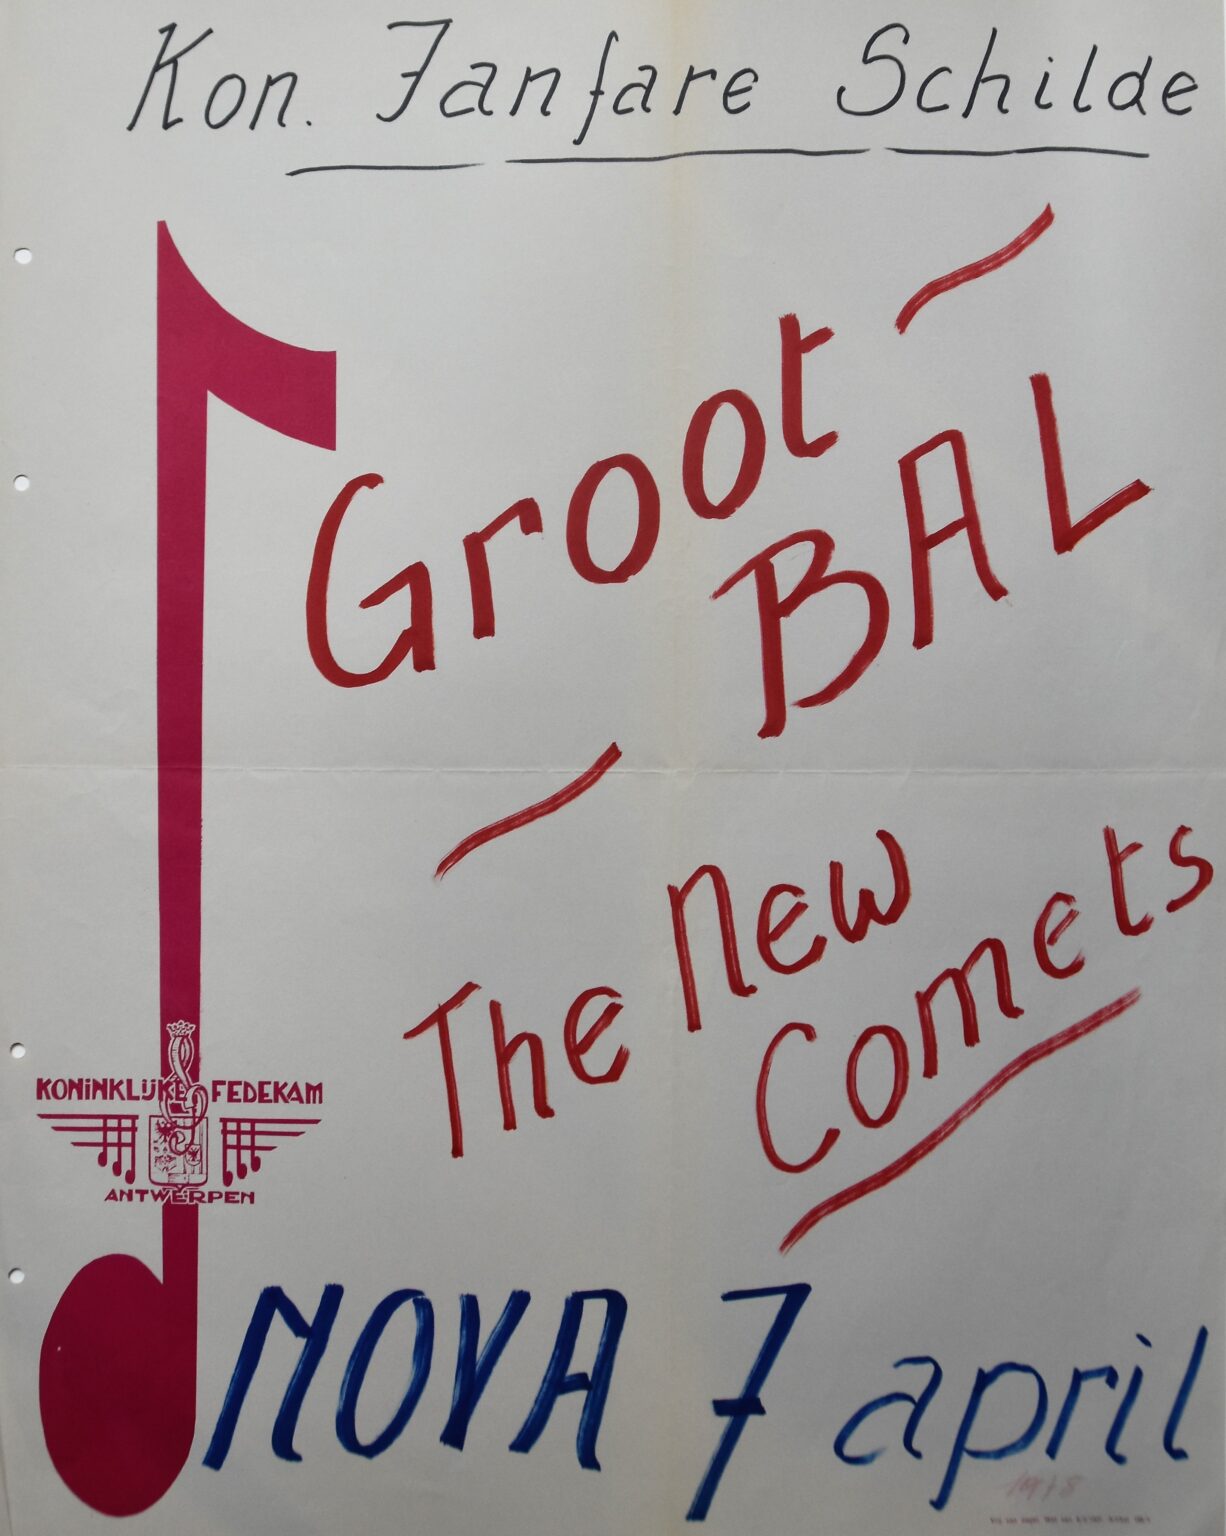 Kon. Fanfare Schilde
Groot
BAL
The New
Comets
KONINKLIJKE FEDEKAM
ANTWERPEN
NOVA 7 april
1978